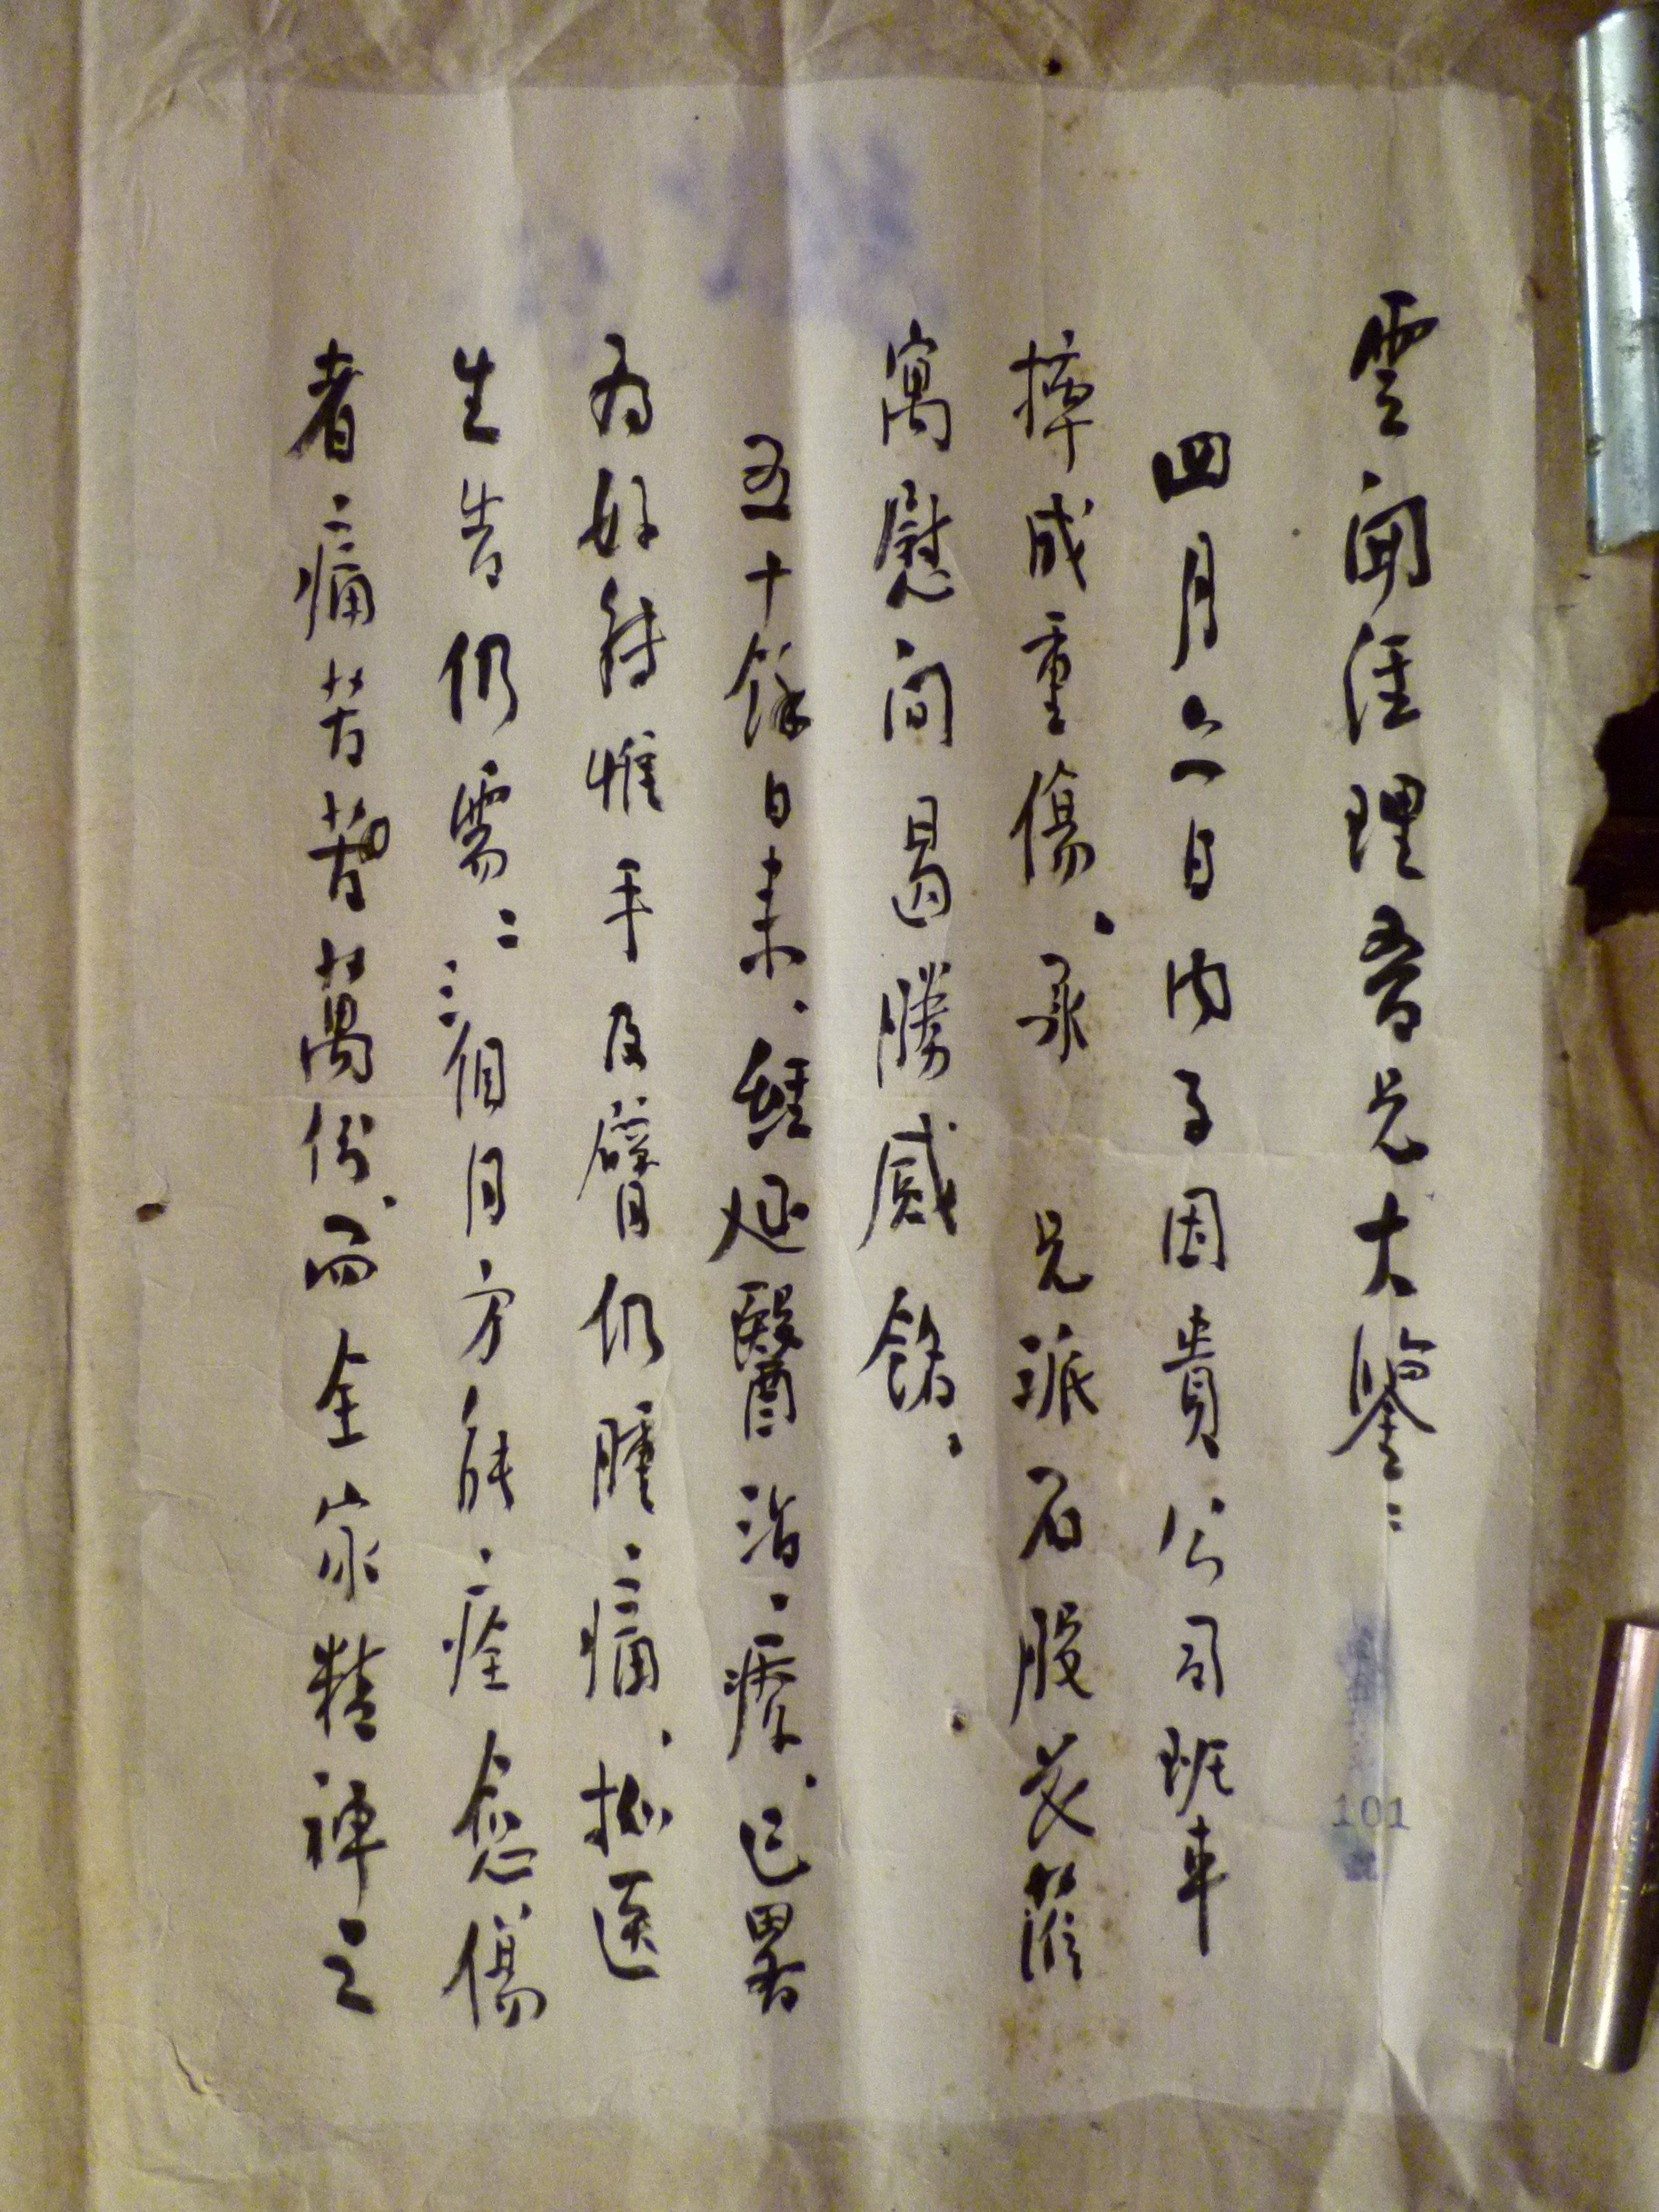 雲閣經理吾兄大鑒：
四月六日內子因貴公司班車
撞成重傷。承 兄派石股長蒞
寓慰問曷勝感銘。
五十餘日來，經延醫治療，已畧
為好轉惟手及臂仍腫痛，據医
生告仍需二三個月方能痊愈傷
者痛苦萬份，而全家精神之
101